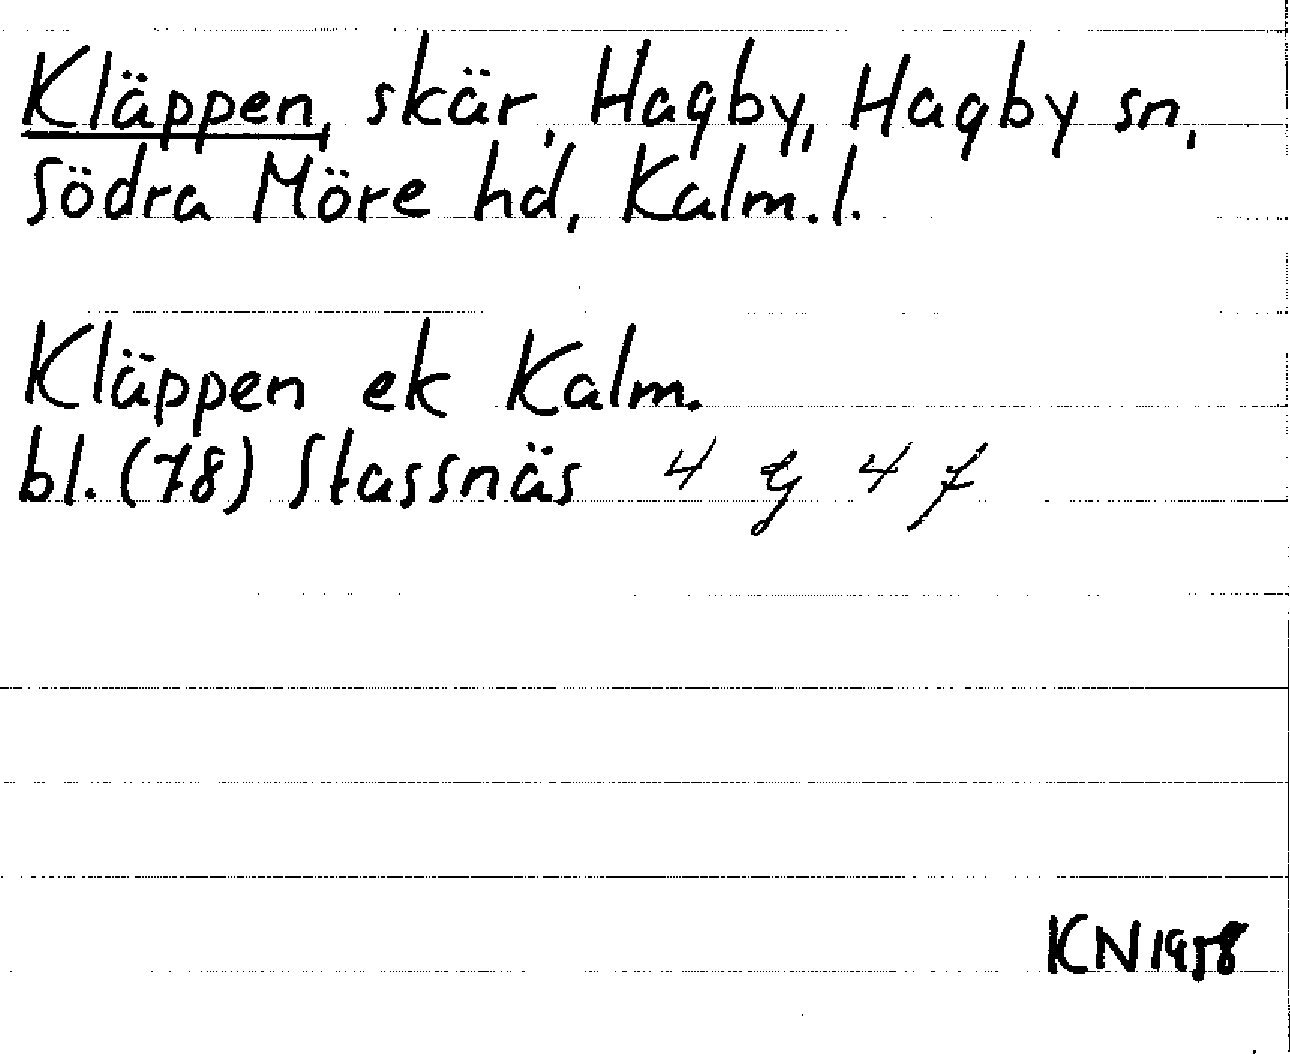 Kläppen, skär, Hagby, Hagby sn,
Södra Möre hd, Kalm. l.
Kläppen ek Kalm.
bl. (78) Stassnäs 4 G 4 f
KN 1958